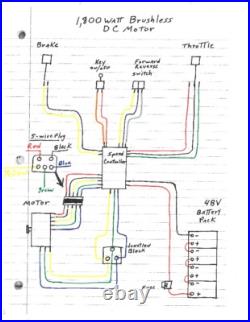 1,800 watt Brushless
DC Motor
Brake
Key
on/off
Forward
Reverse
switch
Throttle
5-wire plug
Red
Black
Blue
Yellow
Green
Speed
Controller
MOTOR
48V
Battery
Pack
Junction
Block
Fuse
- + - + - + - +